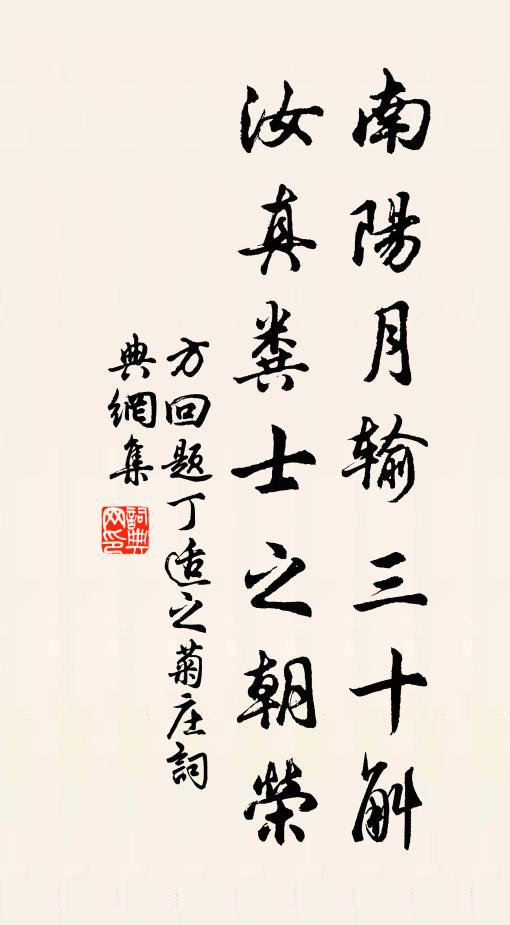 南陽月輸三十斛
汝真糞士之朝榮
方回題丁適之菊庄詞
典網集
詞典网印